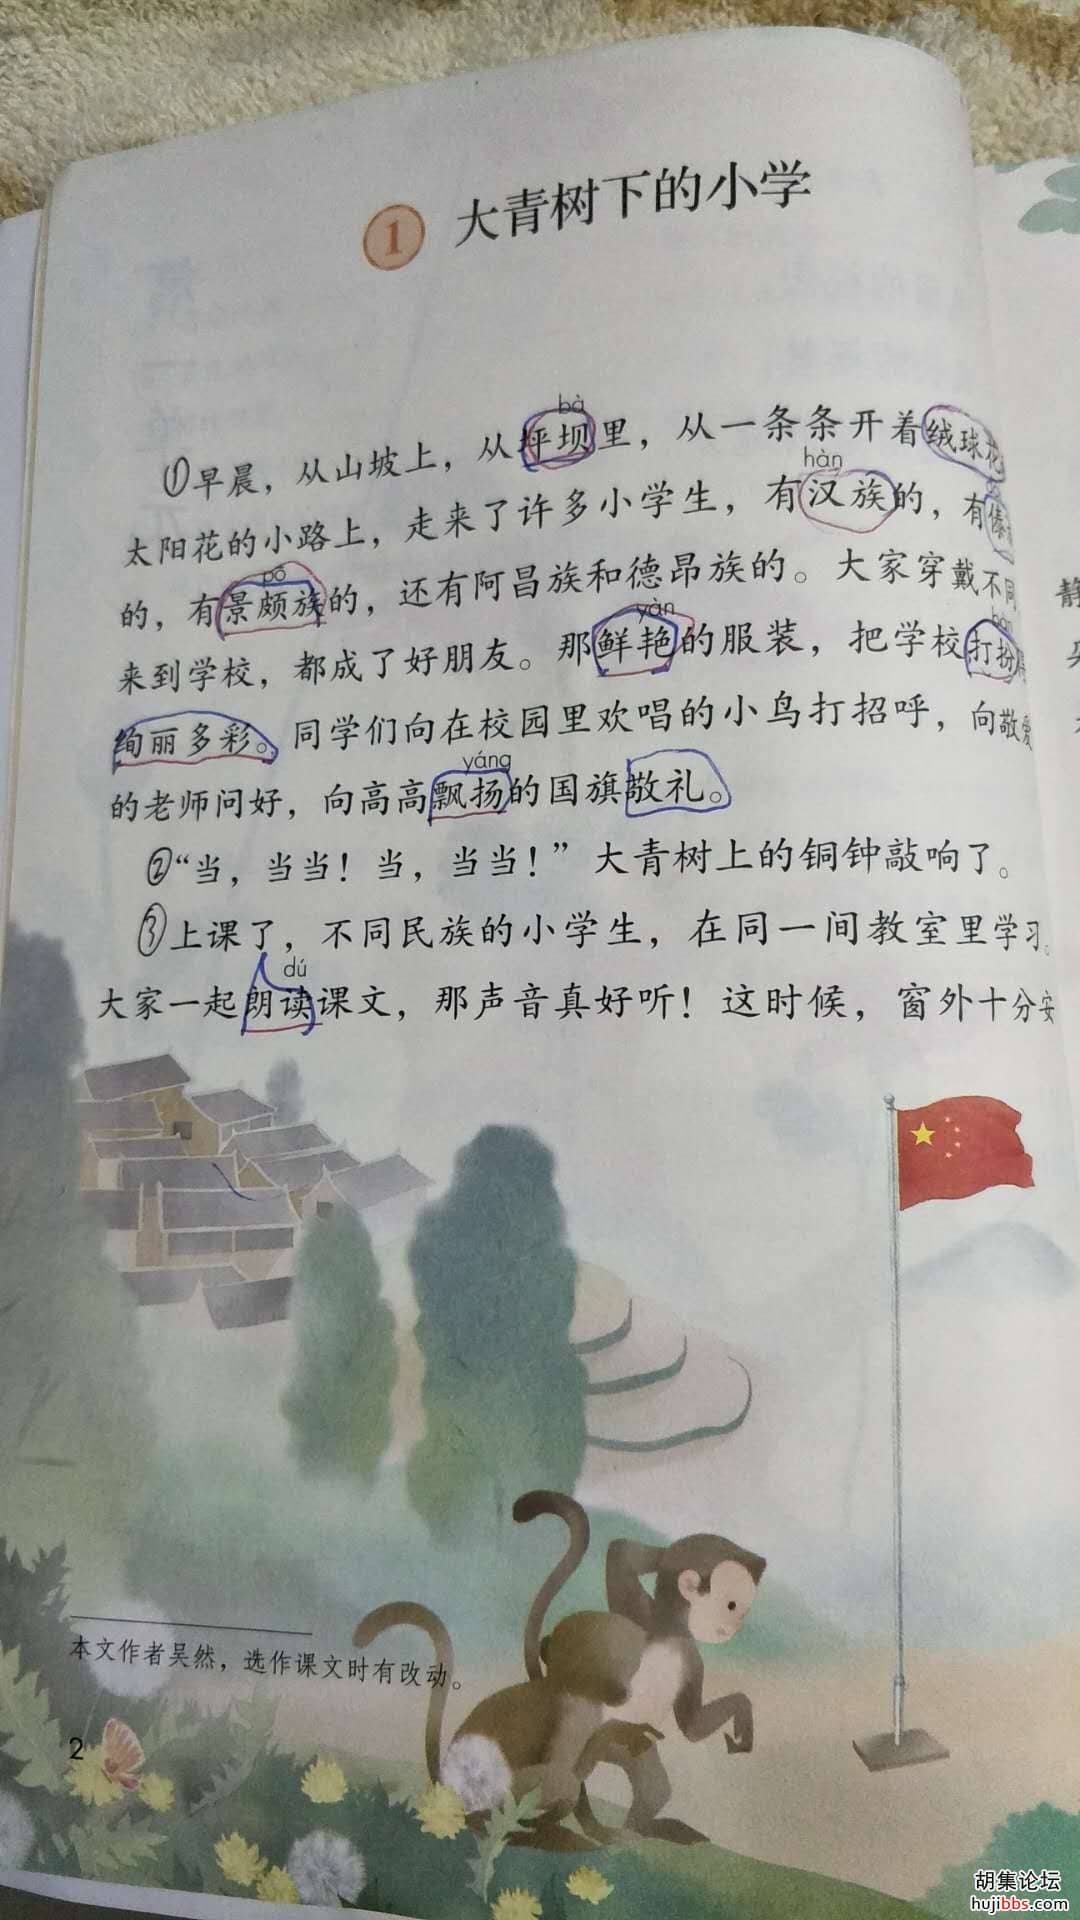 1 大青树下的小学
bà
①早晨，从山坡上，从坪坝里，从一条条开着绒球花
hàn
太阳花的小路上，走来了许多小学生，有汉族的，有傣
pō
的，有景颇族的，还有阿昌族和德昂族的。大家穿戴不同
yàn bàn
来到学校，都成了好朋友。那鲜艳的服装，把学校打扮得
绚丽多彩。同学们向在校园里欢唱的小鸟打招呼，向敬爱
yáng
的老师问好，向高高飘扬的国旗敬礼。
②“当，当当！当，当当！”大青树上的铜钟敲响了。
③上课了，不同民族的小学生，在同一间教室里学习。
dú
大家一起朗读课文，那声音真好听！这时候，窗外十分安
静
本文作者吴然，选作课文时有改动。
2
胡集论坛
hujibbs.com